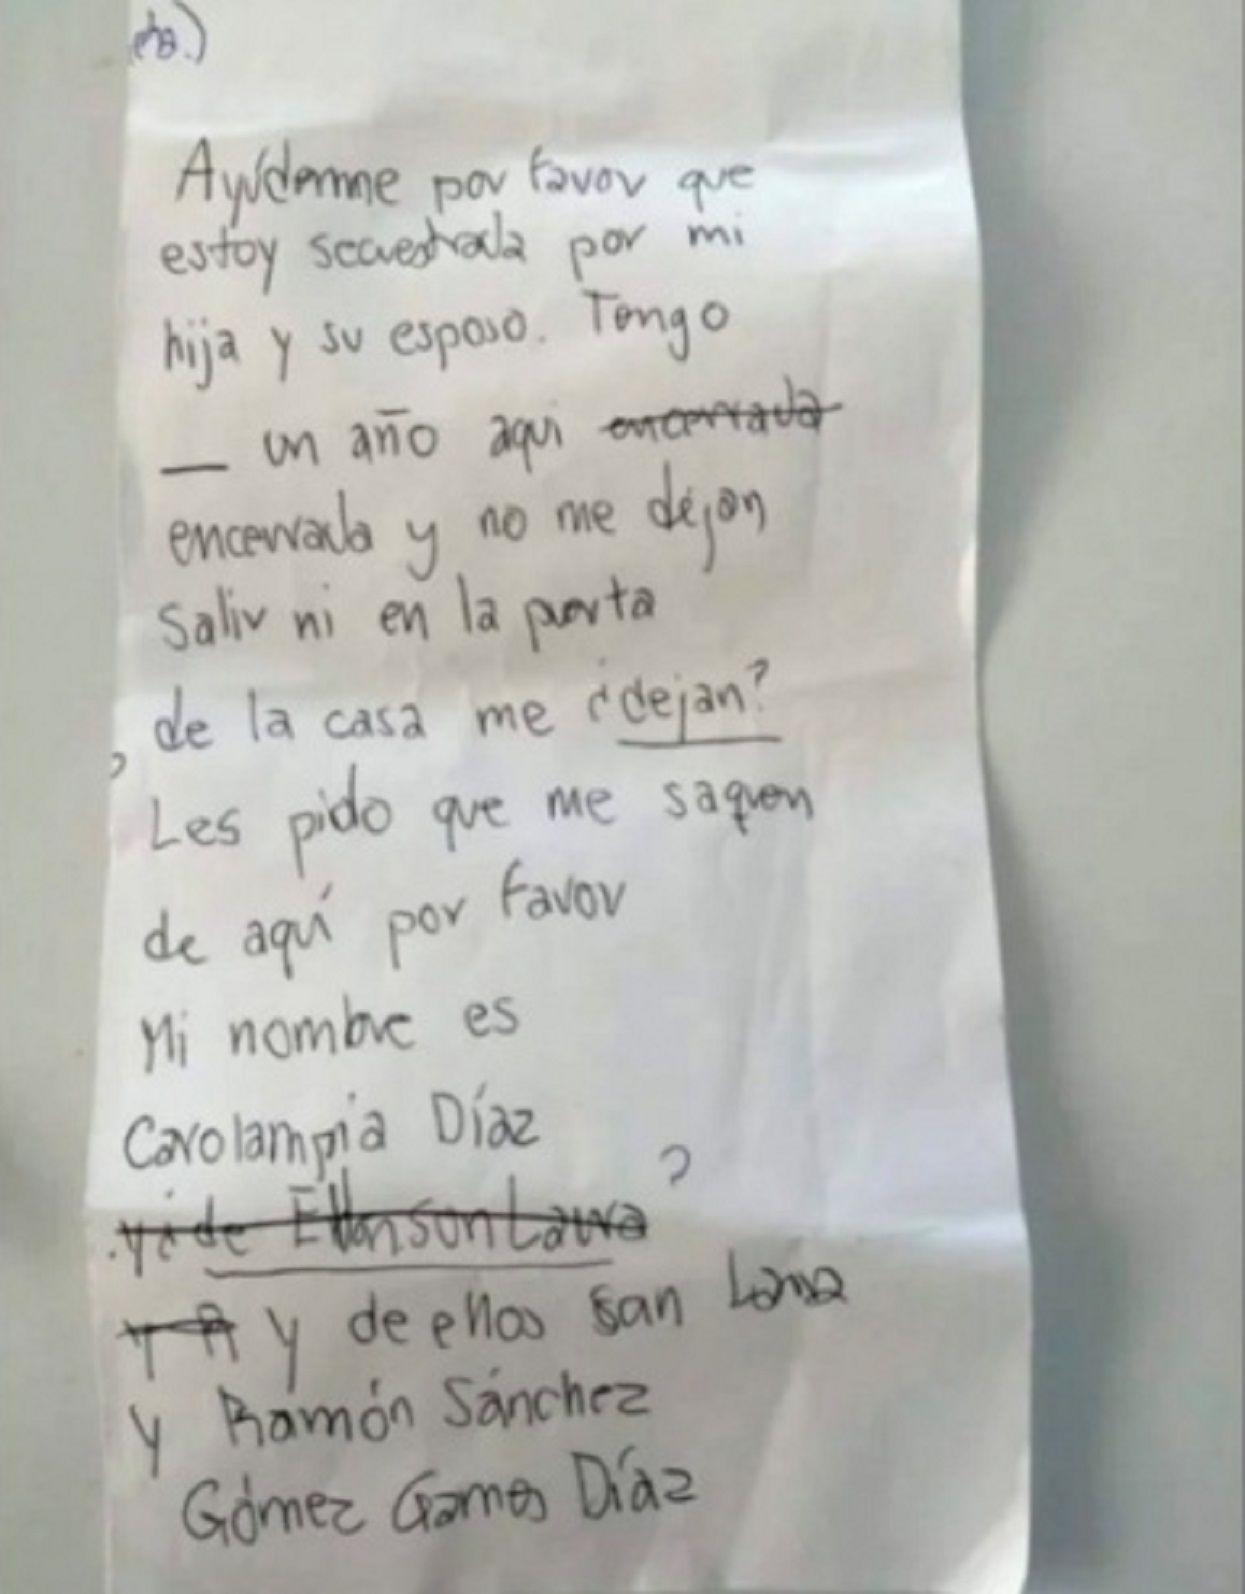 Ayúdenme por favor que
estoy secuestrada por mi
hija y su esposo. Tengo
un año aqui encerrada
encerrada y no me dejan
salir ni en la puerta
de la casa me ¿dejan?
Les pido que me saquen
de aquí por favor
Mi nombre es
Carolampia Díaz
?
y de ellos san
y Ramón Sánchez
Gómez Games Díaz